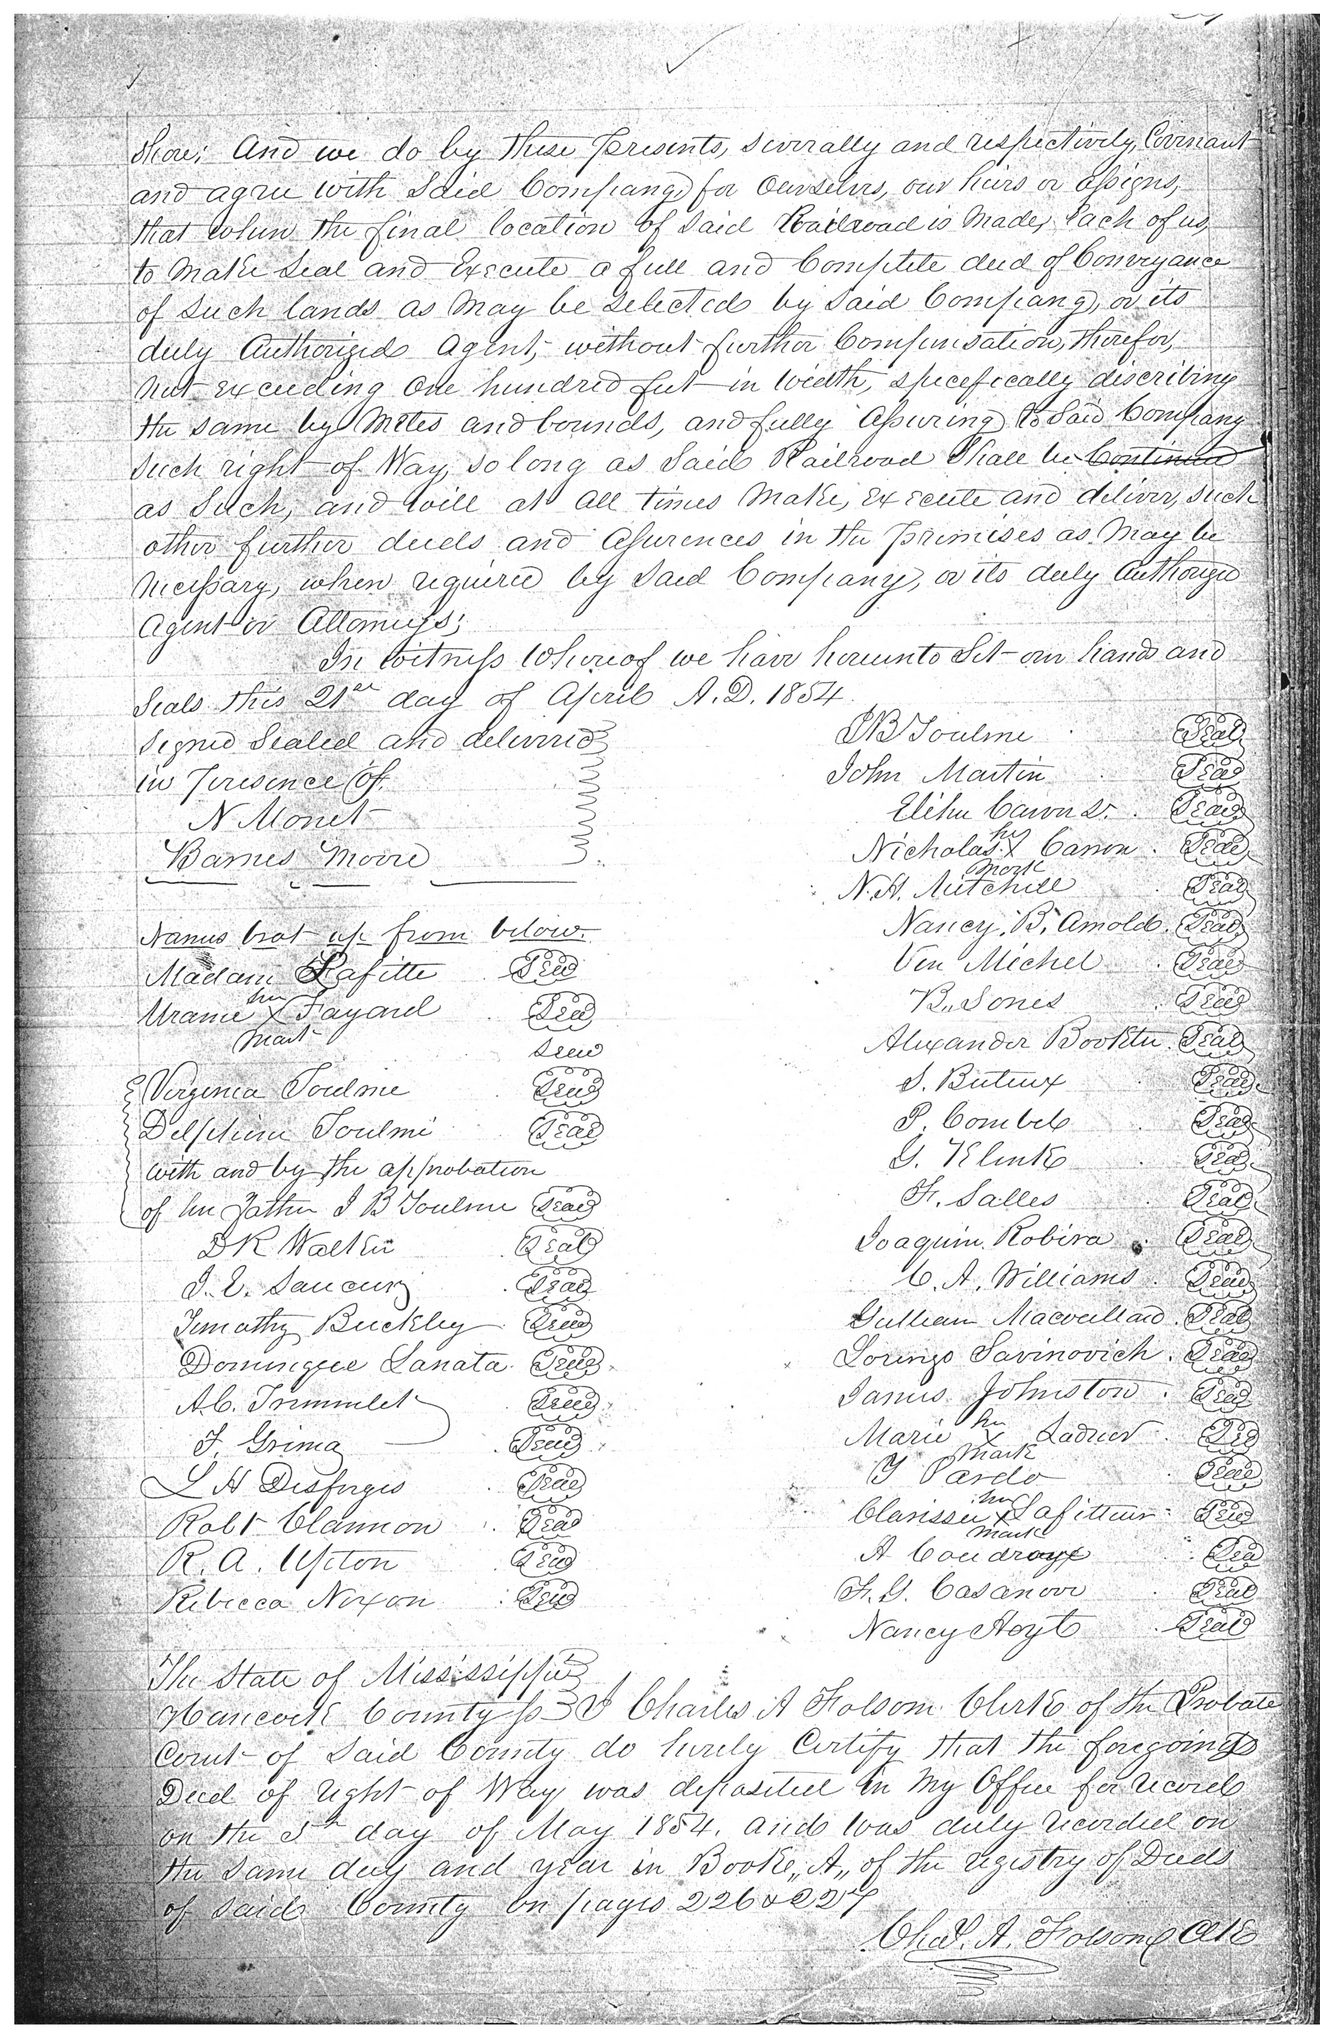 Shore; And we do by these presents, severally and respectively, Covenant
and agree with Said Company for Ourselves, our heirs or assigns,
that when the final location of Said Railroad is Made, Each of us,
to Make Seal and Execute a full and Complete deed of Conveyance
of Such lands as May be Selected by Said Company, or its
duly Authorized Agent, without further Compensation, therefor,
not exceeding One hundred feet in width, specefically discribing
the same by Metes and bounds, and fully Assuring to Said Company
Such right of Way, so long as Said Railroad Shall be Continued
as Such, and will at all times Make, Execute and deliver, such
other further deeds and Assurences in the premises as May be
necessary, when required by Said Company, or its duly Authorized
Agent or Attorneys;
In Witness Whereof we have hereunto Set our hands and
Seals this 21st day of April A.D. 1854
Signed Sealed and delivered
in Presence of
N Monet
Barnes Moore
J B Toulme Seal
John Martin Seal
Elihu Carver Sr. Seal
Nicholas his X mark Carron Seal
N. A. Mitchell Seal
Nancy B. Arnold Seal
Ven Michel Seal
B. Jones Seal
Alexander Bookter Seal
S. Buteux Seal
P. Combel Seal
G. Klink Seal
F. Salles Seal
Joaquim Robira Seal
C. A. Williams Seal
Gulliam Seal
Lorenzo Savinovich Seal
James Johnston Seal
Marie her X mark Ladner Seal
Y Pardo Seal
Clarisse her X mark Seal
A Seal
F. G. Casanove Seal
Nancy Hoyt Seal
Names brot up from below.
Madam Lafitte Seal
Uranie her X mark Fayard Seal
Seal
Virginia Toulme Seal
Delphine Toulme Seal
with and by the approbation
of her father J B Toulme Seal
D R Walker Seal
J. E. Saucier Seal
Timothy Buckley Seal
Domingue Lanata Seal
A. C. Trimmulet Seal
F. Grima Seal
L H Desforges Seal
Robt Clannon Seal
R. A. Upton Seal
Rebecca Noxon Seal
The State of Mississippi
Hancock County ss I Charles A Folsom Clerk of the Probate
Court of Said County do hereby Certify that the foregoing
Deed of right of Way was deposited in My Office for record
on the 5th day of May 1854. and was duly recorded on
the same day and year in Booke "A" of the registry of Deeds
of Said County on pages 226 & 227
Chas. A. Folsom Clk